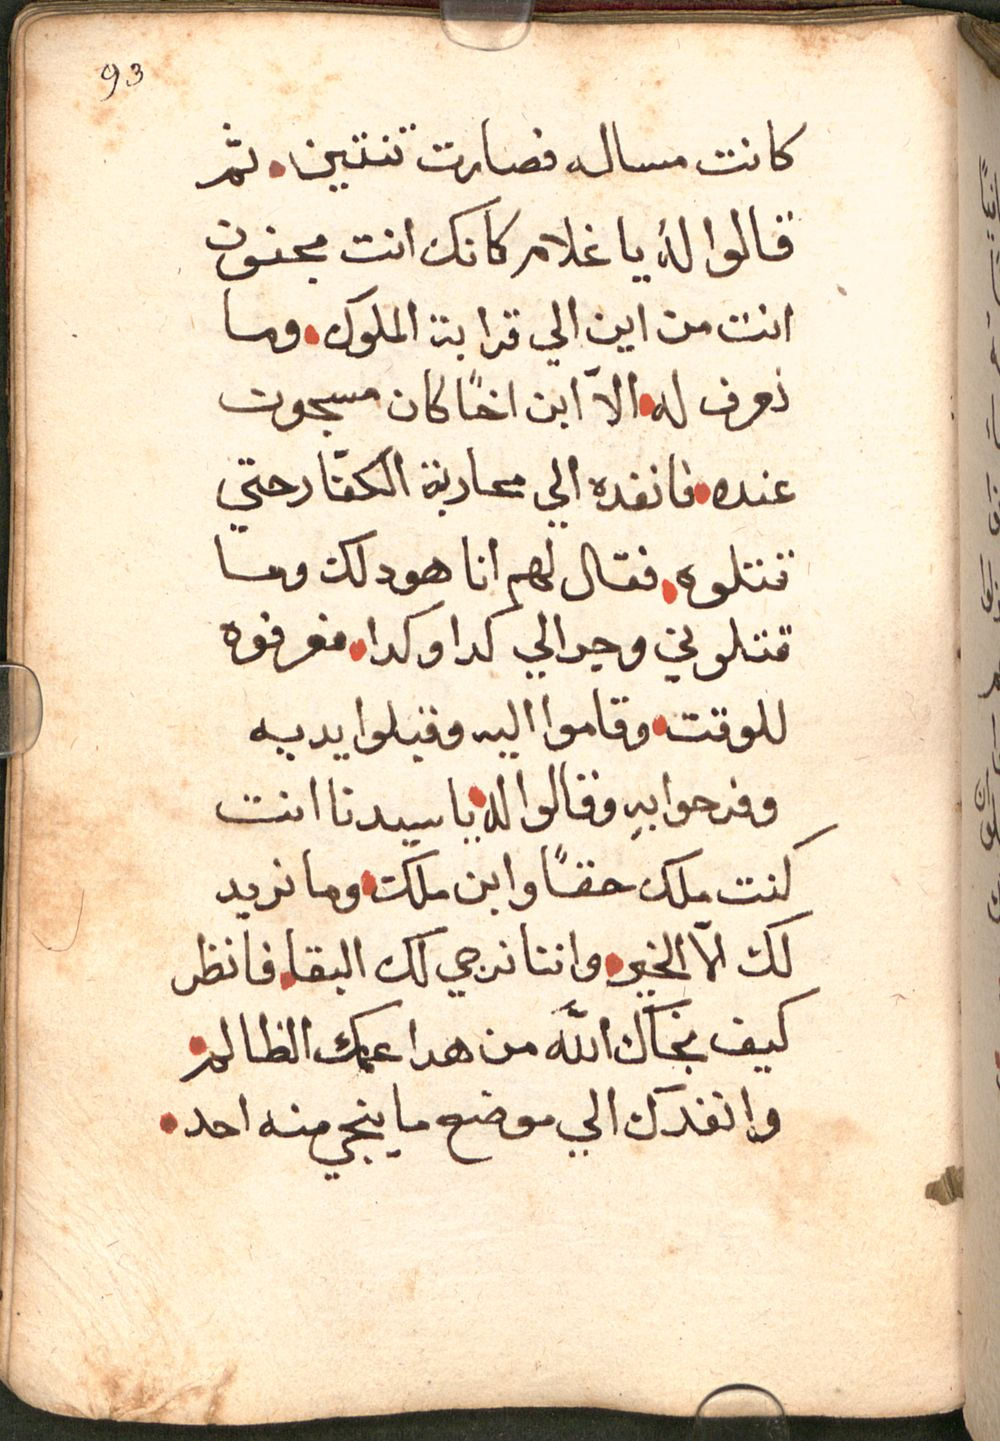 93
كانت مساله فصارت تنتين. ثم
قالوا له يا غلام كانك انت مجنون
انت من اين الي قرابة الملوك. وما
نعرف له. الاّ ابن اخًا كان مسجون
عنده. فانفده الي محاربة الكفّار حتي
قتلوه. فقال لهم انا هو دلك وما
قتلوني وجرالي كدا وكدا. فعرفوه
للوقت. وقاموا اليه وقبلوا يديه
وفرحوا به وقالوا له. يا سيدنا انت
كنت ملك حقـًا وابن ملك. وما نريد
لك الاّ الخير. واننا نرجي لك البقا. فانظر
كيف نجّاك اللّه من هدا عمك الظالم.
وانفدك الي موضع ما ينجي منه احد.